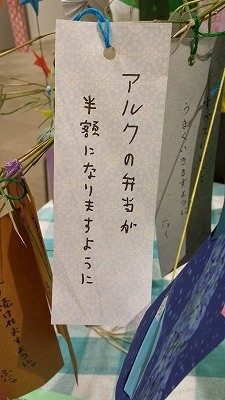 アルクの弁当が
半額になりますように
うまくいきますように